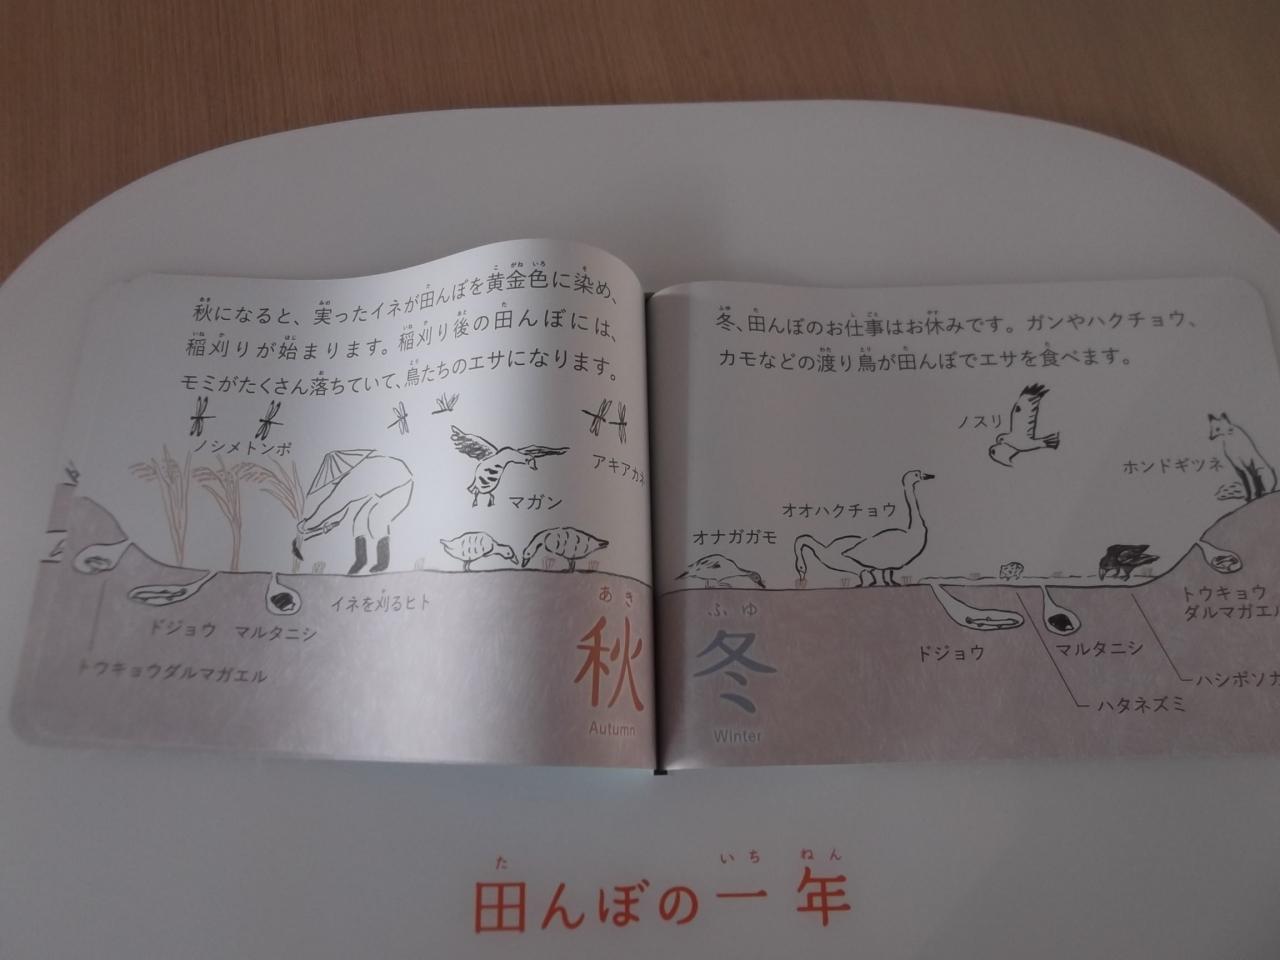 秋になると、実ったイネが田んぼを黄金色に染め、
稲刈りが始まります。稲刈り後の田んぼには、
モミがたくさん落ちていて、鳥たちのエサになります。
ノシメトンボ
アキアカネ
マガン
イネを刈るヒト
ドジョウ
マルタニシ
トウキョウダルマガエル
あき
秋
Autumn
冬、田んぼのお仕事はお休みです。ガンやハクチョウ、
カモなどの渡り鳥が田んぼでエサを食べます。
ノスリ
ホンドギツネ
オオハクチョウ
オナガガモ
トウキョウ
ダルマガエル
ドジョウ
マルタニシ
ハシボソガ
ハタネズミ
ふゆ
冬
Winter
田んぼの一年